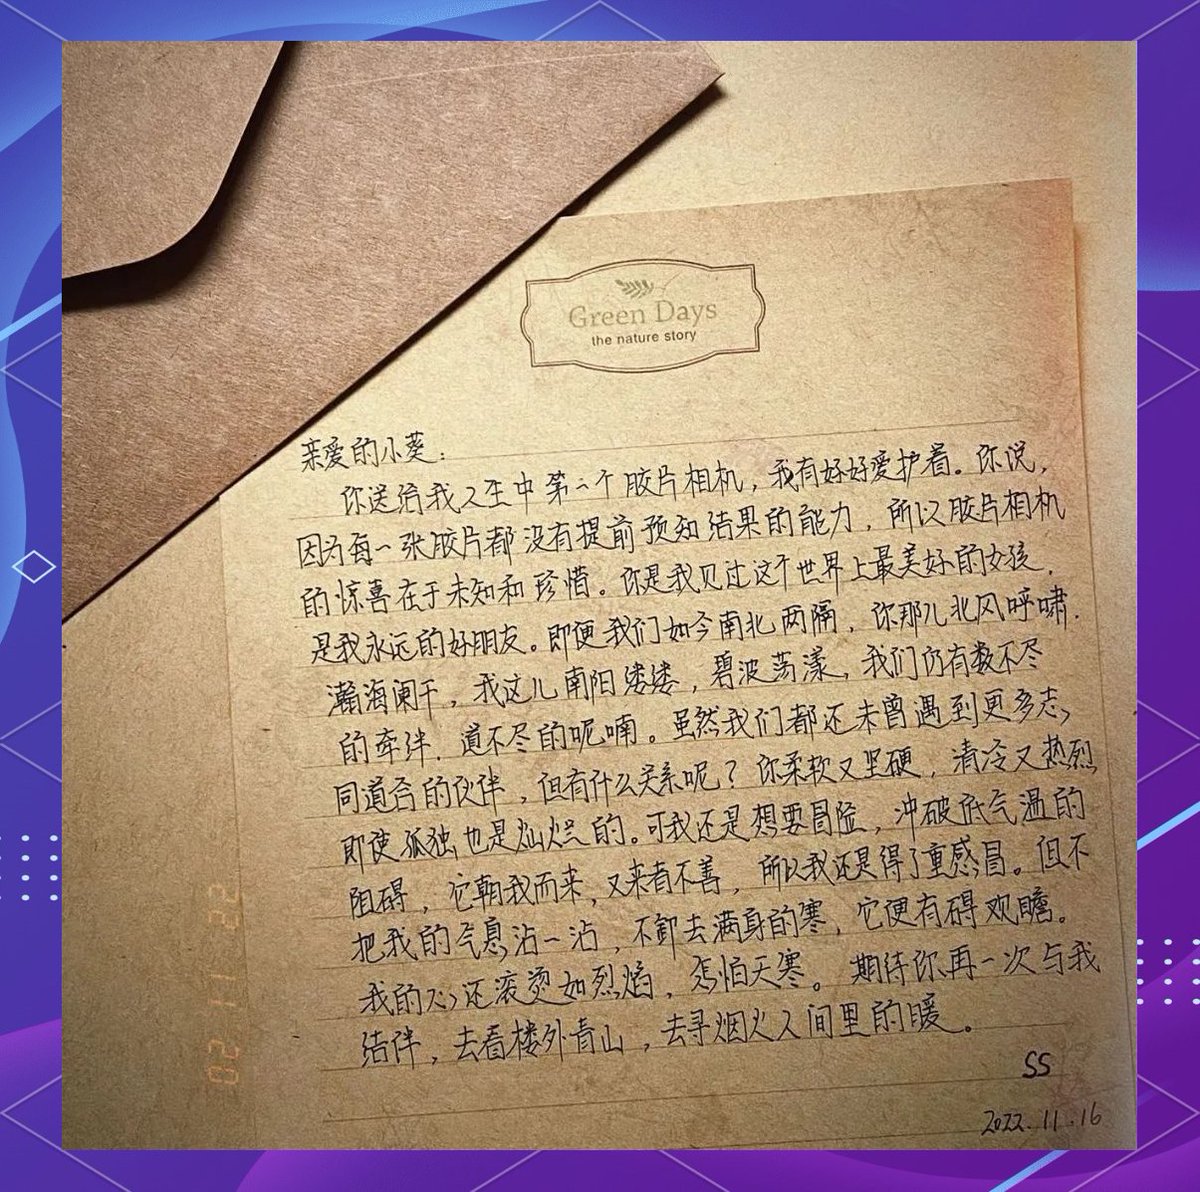 Green Days
the nature story
亲爱的小葵：
你送给我人生中第一个胶片相机，我有好好爱护着。你说，
因为每一张胶片都没有提前预知结果的能力，所以胶片相机
的惊喜在于未知和珍惜。你是我见过这个世界上最美好的女孩，
是我永远的好朋友。即便我们如今南北两隔，你那儿北风呼啸，
瀚海阑干，我这儿南阳缕缕，碧波荡漾，我们仍有数不尽
的牵绊，道不尽的呢喃。虽然我们都还未曾遇到更多志
同道合的伙伴，但有什么关系呢？你柔软又坚硬，清冷又热烈
即使孤独也是灿烂的。可我还是想要冒险，冲破低气温的
阻碍，它朝我而来，又来者不善，所以我还是得了重感冒。但不
把我的气息沾一沾，不卸去满身的寒，它便有碍观瞻。
我的心还滚烫如烈焰，怎怕天寒。期待你再一次与我
结伴，去看楼外青山，去寻烟火人间里的暖。
SS
2022.11.16
22 11 20